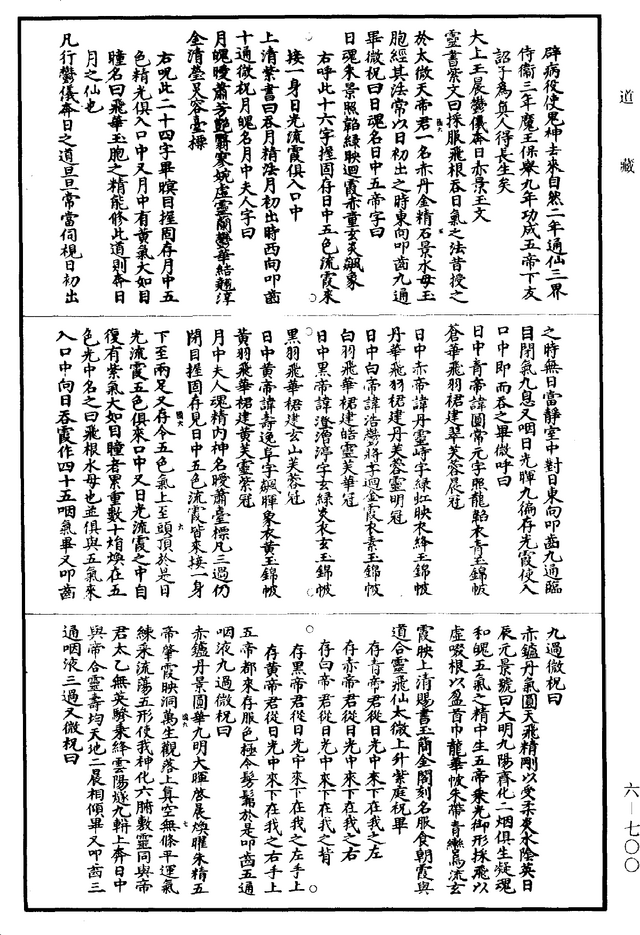 道藏
辟病役使鬼神去來自然二年通仙三界
侍衛三年魔王保舉九年功成五帝下友
詔子爲真人得長生矣
太上玉晨鬱儀奔日赤景玉文
靈書紫文曰採服飛根吞日氣之法昔授之
於太微天帝君一名赤丹金精石景水母玉
胞經其法常以日初出之時東向叩齒九通
畢微祝曰日魂名日中五帝字曰
日魂朱景照韜綠映迴霞赤童玄炎飈象
右呼此十六字握固存日中五色流霞來
接一身日光流霞俱入口中
上清紫書曰吞月精法月初出時西向叩齒
十通微祝月魄名月中夫人字曰
月魄曖蕭芬艷翳寥婉虛靈蘭鬱華結翹淳
金清瑩炅容臺標
右呪此二十四字畢瞑目握固存月中五
色精光俱入口中又月中有黄氣大如目
瞳名曰飛華玉胞之精能修此道則奔日
月之仙也
凡行鬱儀奔日之道旦旦常當伺視日初出
之時無日當靜室中對日東向叩齒九通臨
目閉氣九息又咽日光暉九徧存光霞使入
口中即而吞之畢微呼曰
日中青帝諱圓常元字照龍韜衣青玉錦帔
蒼華飛羽裙建翠芙蓉晨冠
日中赤帝諱丹靈峙字綠虹映衣絳玉錦帔
丹華飛羽裙建丹芙蓉靈明冠
日中白帝諱浩鬱將字迴金霞衣素玉錦帔
白羽飛華裙建皓靈芙華冠
日中黑帝諱澄渟字玄綠炎衣玄玉錦帔
黑羽飛華裙建玄山芙蓉冠
日中黄帝諱壽逸阜字飈暉象衣黄玉錦帔
黄羽飛華裙建黄芙靈紫冠
月中夫人魂精內神名曖蕭臺標凡三過仍
閉目握固存見日中五色流霞皆來接一身
下至兩足又存令五色氣上至頭頂於是日
光流霞五色俱來口中又日光流霞之中自
復有紫氣大如目瞳者累重數十焰煥在五
色光中名之曰飛根水母也並俱與五氣來
入口中向日吞霞作四十五咽氣畢又叩齒
九過微祝曰
赤鑪丹氣圓天飛精剛以受柔炎水陰英日
辰元景號曰大明九陽齊化二烟俱生凝魂
和魄五氣之精中生五帝乘光御形採飛以
虛啜根以盈首巾龍華帔朱帶青轡烏流玄
霞映上清賜書玉簡金閣刻名服食朝霞與
道合靈飛仙太微上升紫庭祝畢
存青帝君從日光中來下在我之左
存赤帝君從日光中來下在我之右
存白帝君從日光中來下在我之背
存黑帝君從日光中來下在我之左手上
存黄帝君從日光中來下在我之右手上
五帝都來存服色極令髣髴於是叩齒五通
咽液九過微祝曰
赤鑪丹景圓華九明大暉啓晨煥曜朱精五
帝肇霞映洞萬生觀落上真空無條平運氣
練采流蕩五形使我神化六腑敷靈同與帝
君太乙無英驂乘絳雲陽燧九軿上奔日中
與帝合靈壽均天地二晨相傾畢又叩齒三
通咽液三過又微祝曰
六—七〇〇